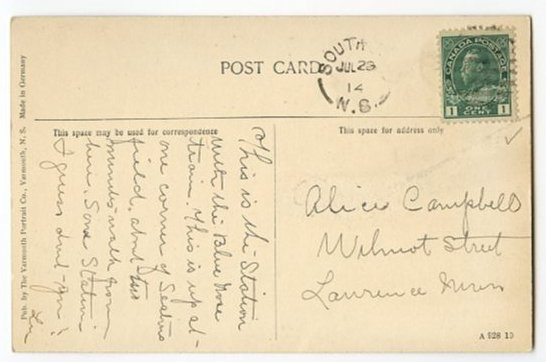 POST CARD
SOUTH
JUL 23
14
N.S.
CANADA POSTAGE
1 ONE CENT 1
This space may be used for correspondence
This space for address only
This is the Station
with the Blue Nose
train. This is up at
one corner of Seabrs
field, about two
minutes walk from
here. Some Station
I guess dont you?
Alice Campbell
Wilmot Street
Lawrence Mass
Pub. by The Yarmouth Portrait Co., Yarmouth, N. S. Made in Germany
A 928 13